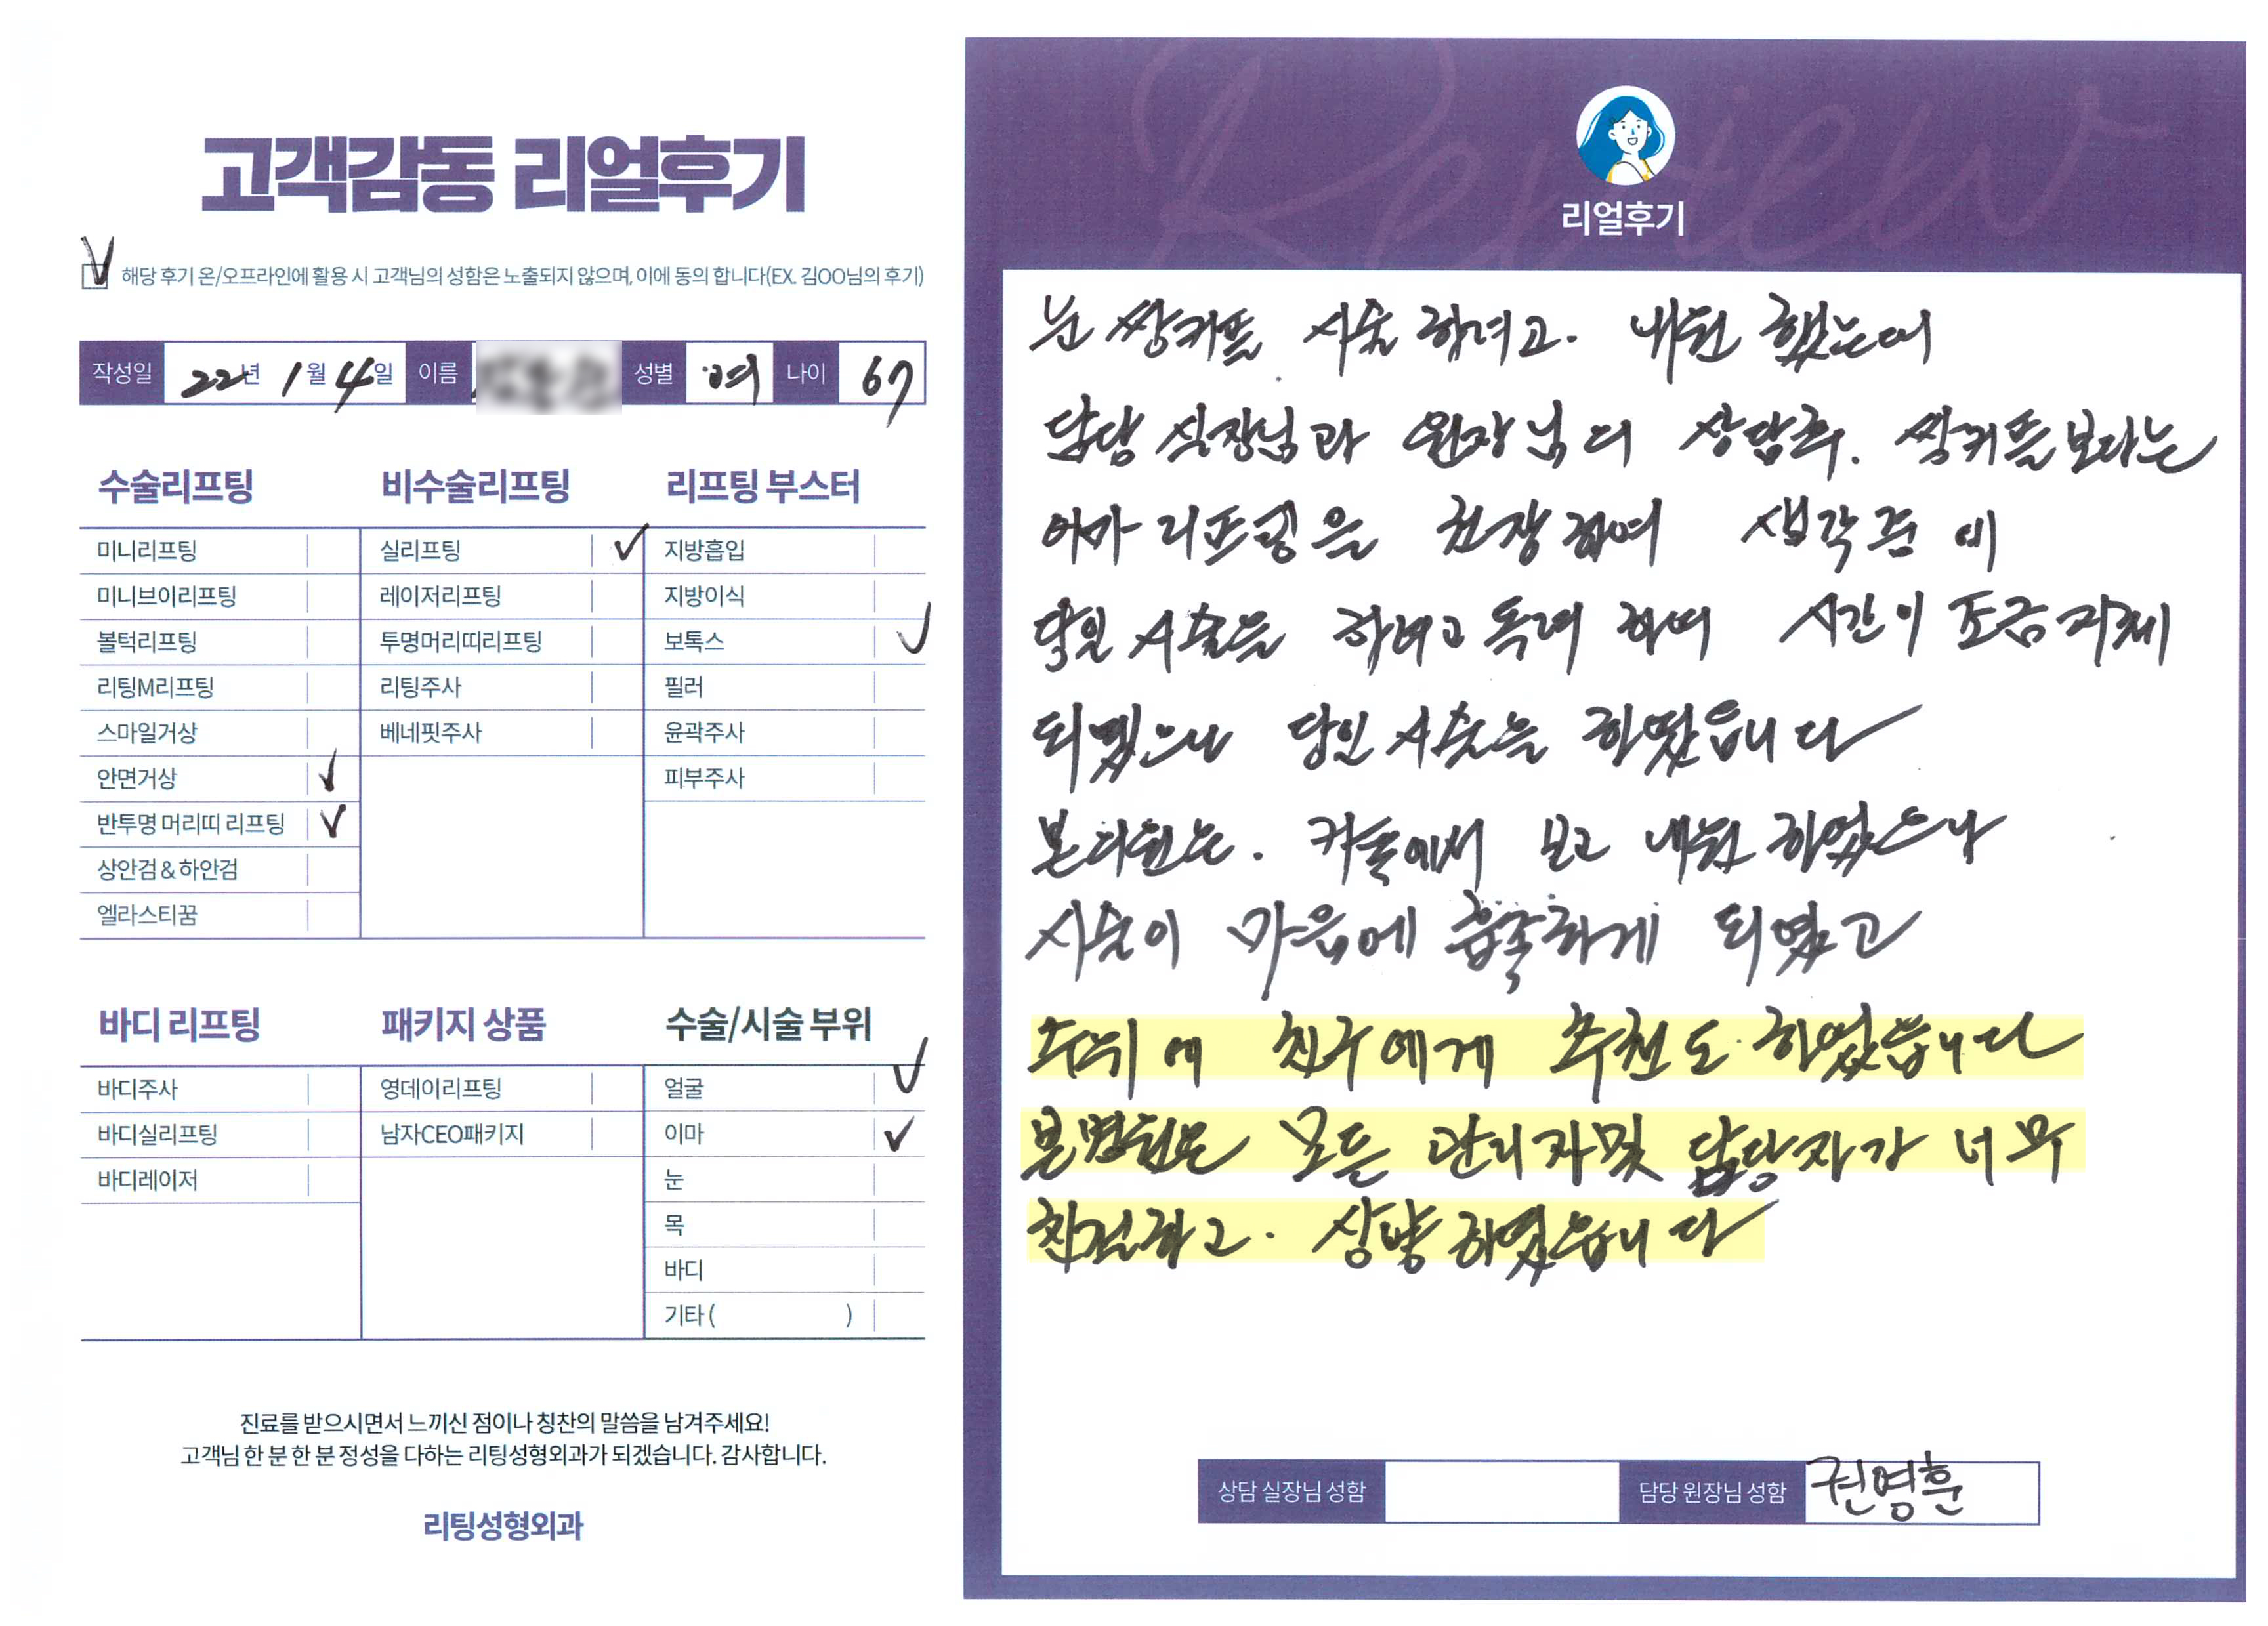 고객감동 리얼후기
해당 후기 온/오프라인에 활용 시 고객님의 성함은 노출되지 않으며, 이에 동의 합니다(EX. 김OO님의 후기)
작성일 22년 1월 4일 이름 성별 여 나이 67
수술리프팅
미니리프팅
미니브이리프팅
볼턱리프팅
리팅M리프팅
스마일거상
안면거상
반투명 머리띠 리프팅
상안검 & 하안검
엘라스티꿈
비수술리프팅
실리프팅
레이저리프팅
투명머리띠리프팅
리팅주사
베네핏주사
리프팅 부스터
지방흡입
지방이식
보톡스
필러
윤곽주사
피부주사
바디 리프팅
바디주사
바디실리프팅
바디레이저
패키지 상품
영데이리프팅
남자CEO패키지
수술/시술 부위
얼굴
이마
눈
목
바디
기타 ( )
진료를 받으시면서 느끼신 점이나 칭찬의 말씀을 남겨주세요!
고객님 한 분 한 분 정성을 다하는 리팅성형외과가 되겠습니다. 감사합니다.
리팅성형외과
Review
리얼후기
눈 쌍커플 시술 하려고. 내원 했는데
담당 실장님과 원장님의 상담후. 쌍커플보다는
이마 리프팅을 권장하여 생각중에
당일 시술을 하려고 독려 하며 시간이 조금 지체
되였으나 당일 시술을 하였읍니다
본 의원은. 커플에서 보고 내원 하였으나
시술이 마음에 흡족하게 되였고
주위에 친구에게 추천도 하였읍니다
본병원은 모든 관리자및 담당자가 너무
친절하고. 상냥하였읍니다
상담 실장님 성함
담당 원장님 성함 권영훈